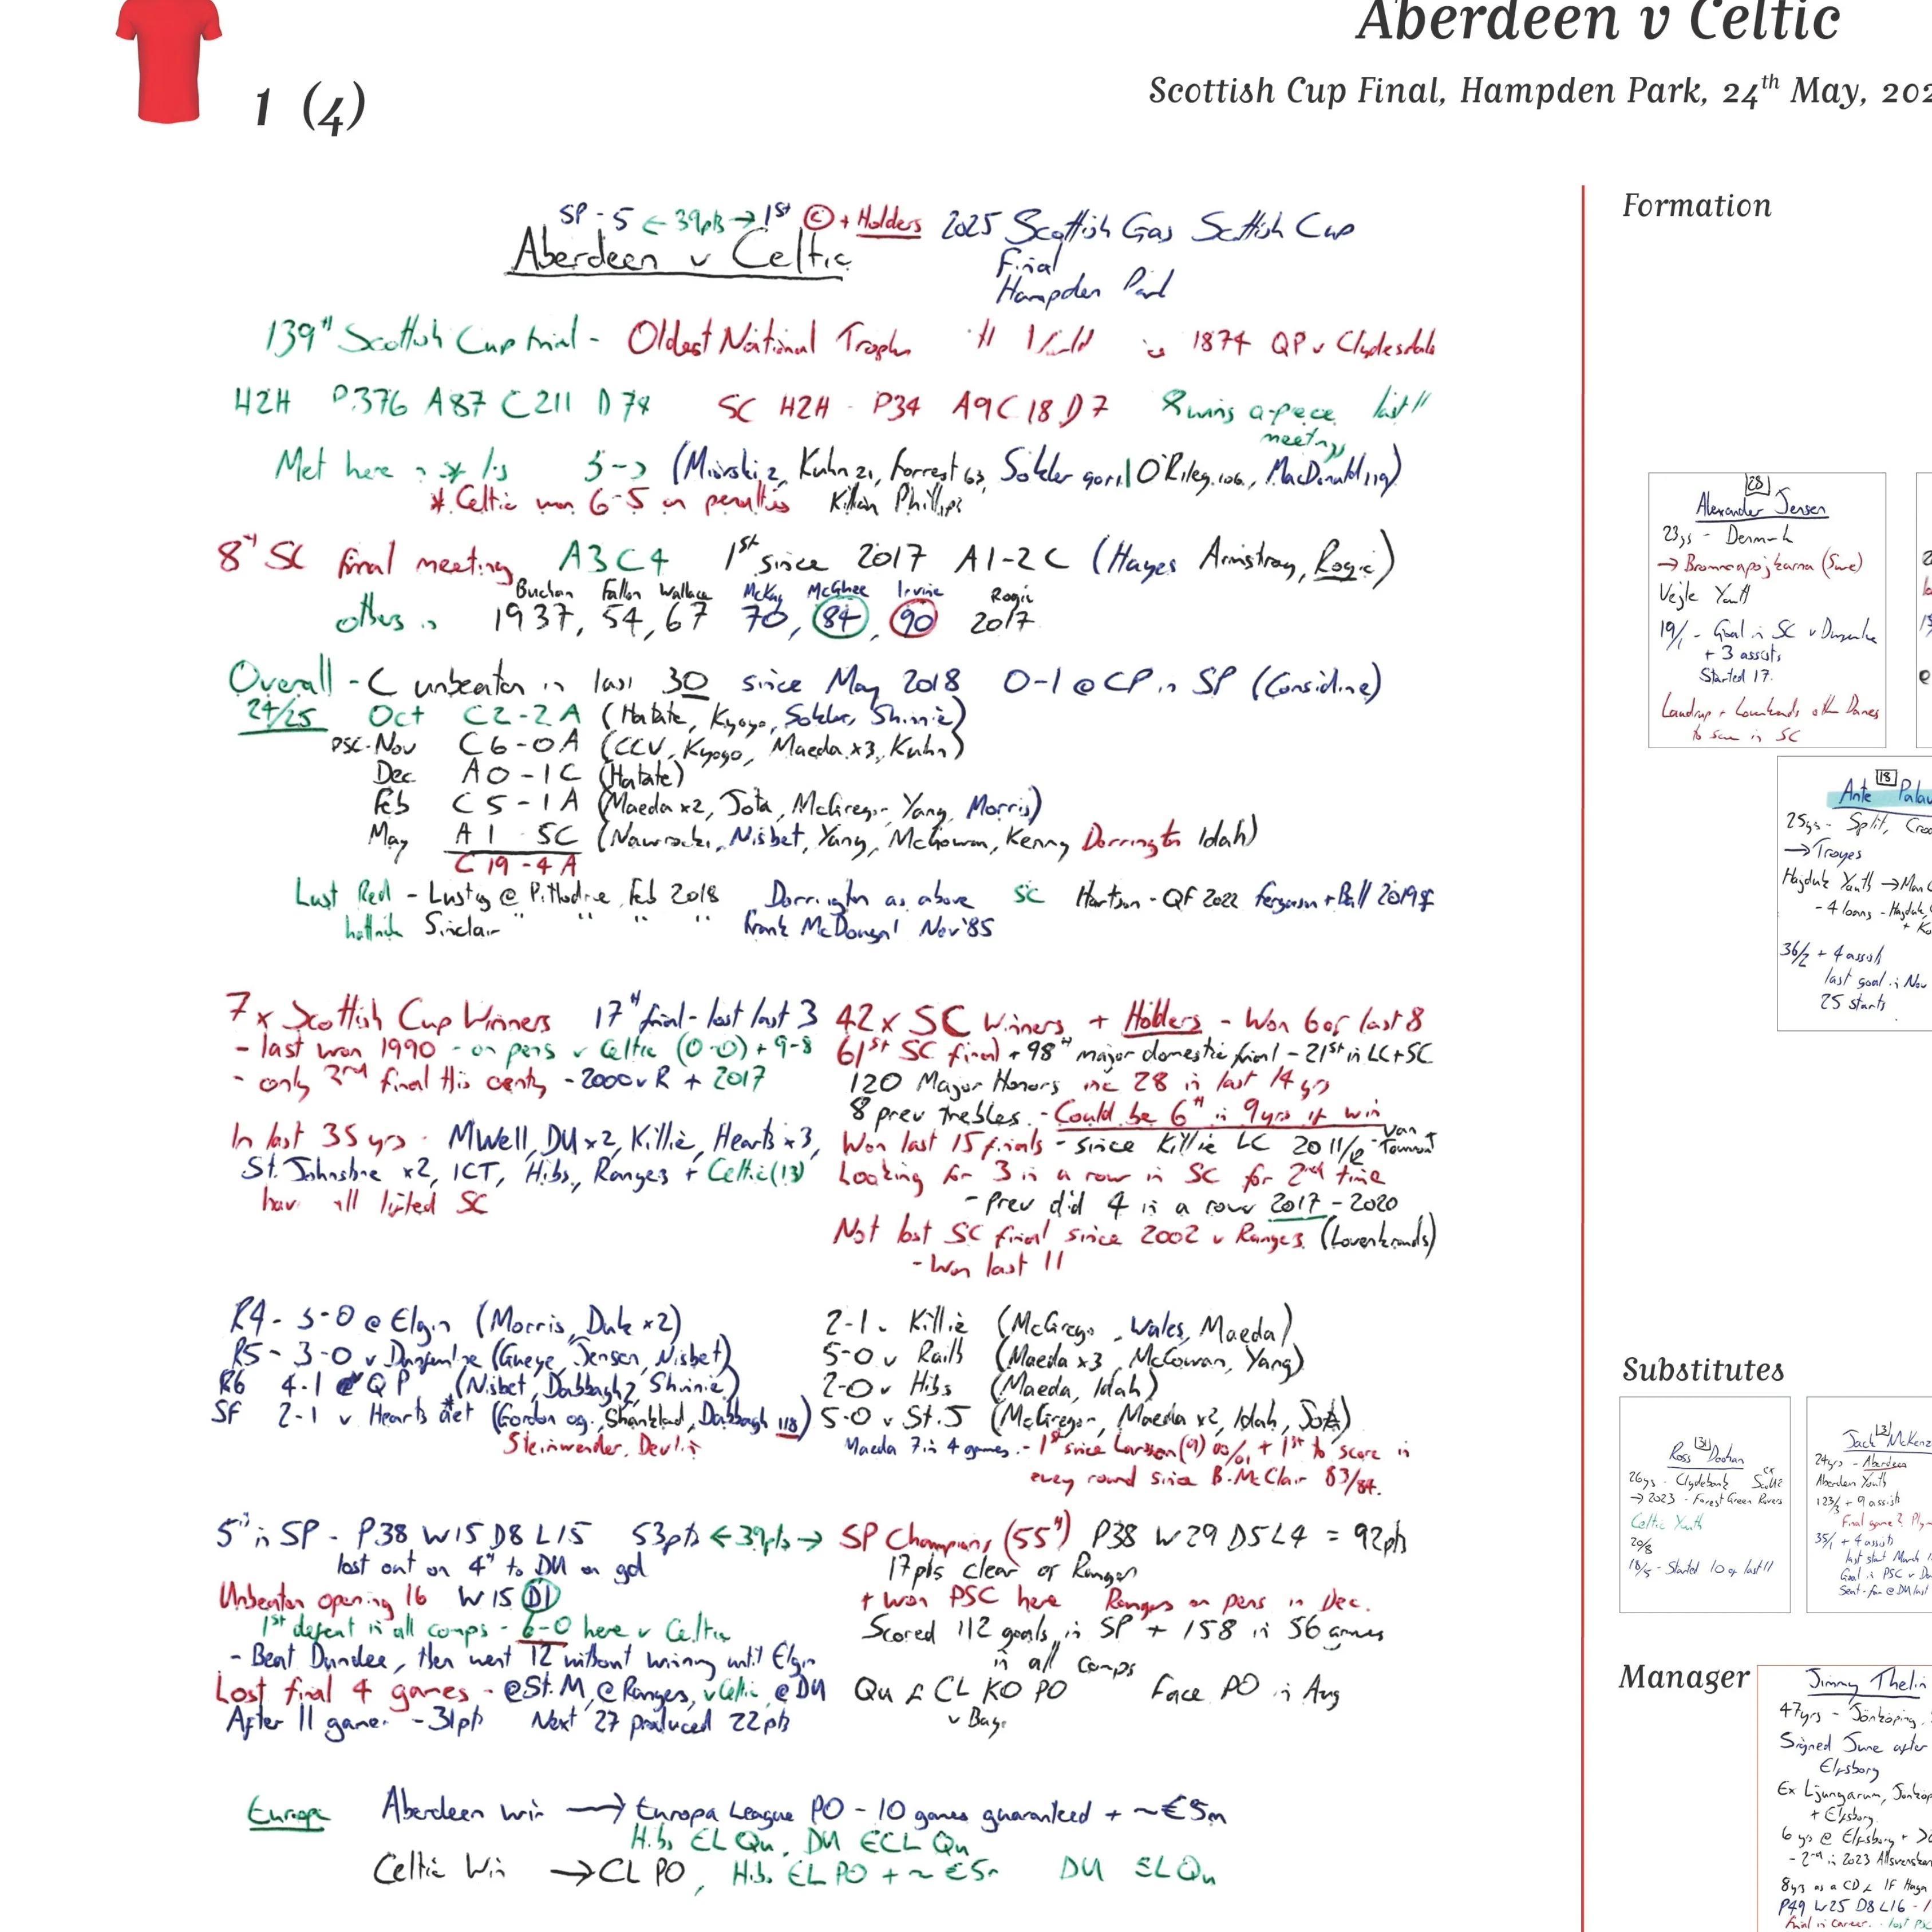 Aberdeen v Celtic
1 (4)
Scottish Cup Final, Hampden Park, 24th May, 202
SP - 5 ← 39pts → 1st © + Holders
2025 Scottish Gas Scottish Cup
Aberdeen v Celtic
Final
Hampden Park
139th Scottish Cup Final - Oldest National Trophy 1874 QP v Clydesdale
H2H P376 A87 C211 D78 SC H2H - P34 A9 C18 D7 8 wins a-piece last 11
meetings
Met here (Miovski 2, Kuhn 21, Forrest 63, Sokler 90+1 O'Riley 106, MacDonald 119)
* Celtic won 6-5 on penalties Killian Phillips
8th SC final meeting A3 C4 1st since 2017 A1-2C (Hayes Armstrong, Rogic)
Buchan Fallon Wallace McKay McGhee Irvine Rogic
others in 1937, 54, 67 70, 84, 90 2017
Overall - C unbeaten in last 30 since May 2018 0-1 @ CP in SP (Considine)
24/25 Oct C2-2A (Hatate, Kyogo, Sokler, Shinnie)
PSC-Nov C6-0A (CCV, Kyogo, Maeda x3, Kuhn)
Dec A0-1C (Hatate)
Feb C5-1A (Maeda x2, Jota, McGregor, Yang, Morris)
May A1 5C (Nawrocki, Nisbet, Yang, McCowan, Kenny Dorrington Idah)
C 19-4 A
Last Red - Lustig @ Pittodrie Feb 2018 Dorrington as above SC Hartson - QF 2022 Ferguson + Ball 2019 sf
hattrick Sinclair " " " " Frank McDougal Nov '85
7 x Scottish Cup Winners 17th final - lost last 3
- last won 1990 - on pens v Celtic (0-0) + 9-8
- only 3rd final this century - 2000 v R + 2017
In last 35 yrs - MWell, DU x2, Killie, Hearts x3,
St. Johnstone x2, ICT, Hibs, Rangers + Celtic (13)
have all lifted SC
42 x SC Winners + Holders - Won 6 of last 8
61st SC final + 98th major domestic final - 21st in LC+SC
120 Major Honors inc 28 in last 14 yrs
8 prev trebles - Could be 6th in 9yrs if win
Won last 15 finals - since Killie LC 2011/12 - Van Tornhout
Looking for 3 in a row in SC for 2nd time
- prev did 4 in a row 2017 - 2020
Not lost SC final since 2002 v Rangers (Lovenkrands)
- Won last 11
R4 - 3-0 @ Elgin (Morris, Duk x2)
R5 - 3-0 v Dunfermline (Gueye, Jensen, Nisbet)
R6 4-1 v QP (Nisbet, Dabbagh 2, Shinnie)
SF 2-1 v Hearts aet (Gordon og, Shankland, Dabbagh 118)
Steinwender, Devlin
2-1 v Killie (McGregor, Wales, Maeda)
5-0 v Raith (Maeda x3, McCowan, Yang)
2-0 v Hibs (Maeda, Idah)
5-0 v St.J (McGregor, Maeda x2, Idah, Jota)
Maeda 7 in 4 games - 1st since Larsson (9) 00/01 + 1st to score in
every round since B. McClair 83/84.
5th in SP - P38 W15 D8 L15 53pts ← 39pts →
lost out on 4th to DU on gd
Unbeaten opening 16 W15 D1
1st defeat in all comps - 6-0 here v Celtic
- Beat Dundee, then went 12 without winning until Elgin
Lost final 4 games - @St.M, @Rangers, v Celtic, @DU
After 11 games - 31pts Next 27 produced 22pts
SP Champions (55th) P38 W29 D5 L4 = 92pts
17pts clear of Rangers
+ won PSC here Rangers on pens in Dec.
Scored 112 goals in SP + 158 in 56 games
in all comps
Qu f CL KO PO Face PO in Aug
v Bay.
Europe Aberdeen win → Europa League PO - 10 games guaranteed + ~€5m
Hibs EL Qu, DU ECL Qu
Celtic Win → CL PO, Hibs EL PO + ~€5m DU ELQu
Formation
28
Alexander Jensen
23ys - Denmark
→ Brommapojkarna (Swe)
Vejle Youth
19/1 - Goal in SC v Dunfermline
+ 3 assists
Started 17.
Laudrup + Lovenkrands other Danes
to score in SC
18
Ante Palav
25ys - Split, Croa
→ Troyes
Hajduk Youth → Man C
- 4 loans - Hajduk,
+ Ko
36/2 + 4 assists
last goal in Nov
25 starts
Substitutes
31
Ross Doohan
26ys - Clydebank
→ 2023 - Forest Green Rovers
Celtic Youth
20/8
18/5 - Started 10 of last 11
13
Jack McKenz
24yrs - Aberdeen
Aberdeen Youth
123/3 + 9 assists
Final game?
35/1 + 4 assists
last start March
Goal in PSC v
Sent-for @ DU last
Manager
Jimmy Thelin
47yrs - Jönköping,
Signed June after
Elfsborg
Ex Ljungarum, Jönköp
+ Elfsborg
6 ys @ Elfsborg +
- 2nd in 2023 Allsvenskan
8ys as a CD f IF Haga
P49 W25 D8 L16
Final in career